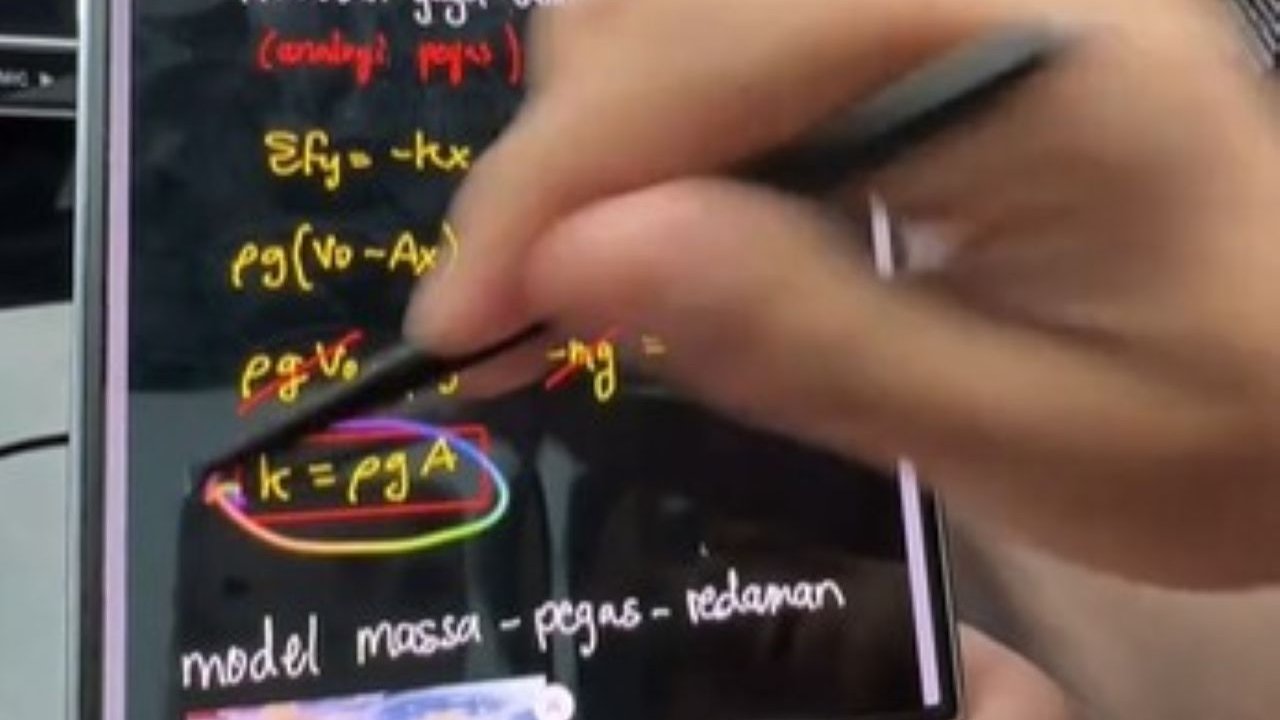 (analogi pegas)
MIC ▶
Σfy = -kx
ρg(V₀ - Ax)
ρgV₀ -mg =
k = ρgA
model massa - pegas - redaman